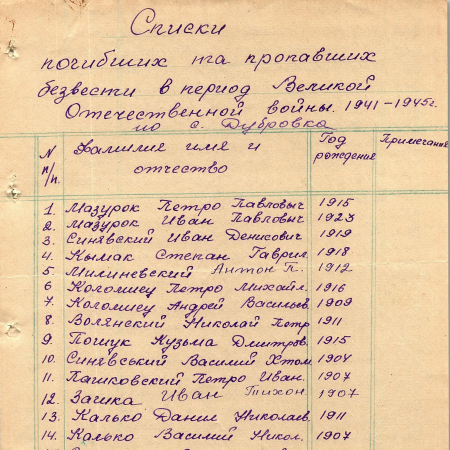 Списки
погибших та пропавших
безвести в период Великой
Отечественной войны 1941-1945г.
по с. Дубровка
N п/п. Фамилия имя и отчество Год рождения Примечани
1. Мазурок Петро Павловыч 1915
2. Мазурок Иван Павловыч 1923
3. Синявский Иван Денисович 1919
4. Кымак Степан Гаврил. 1918
5. Милиневский Антон П. 1912
6 Коломиец Петро Михайл. 1916
7. Коломиец Андрей Васильев. 1909
8. Волянский Николай Петр 1911
9. Пощук Кузьма Дмитров. 1915
10. Синявський Василий Хтом. 1904
11. Пашковский Петро Иван. 1907
12. Заика Иван Тихон. 1907
13. Калько Данил Николаев. 1911
14. Калько Василий Никол. 1907